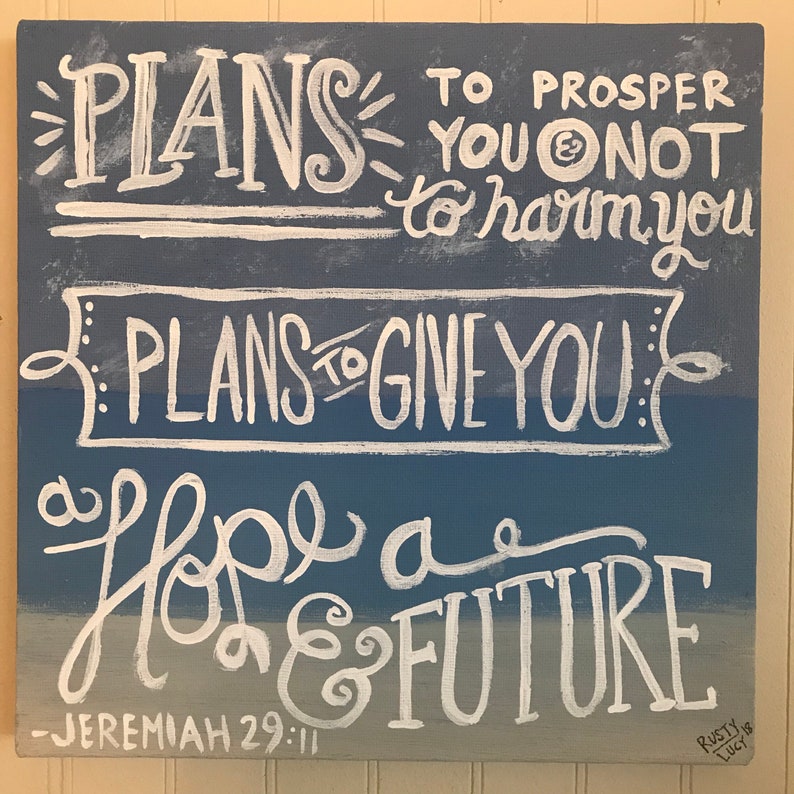 PLANS TO PROSPER
YOU & NOT
to harm you
PLANS TO GIVE YOU
a Hope & a
FUTURE
-JEREMIAH 29:11
RUSTY
LUCY 18